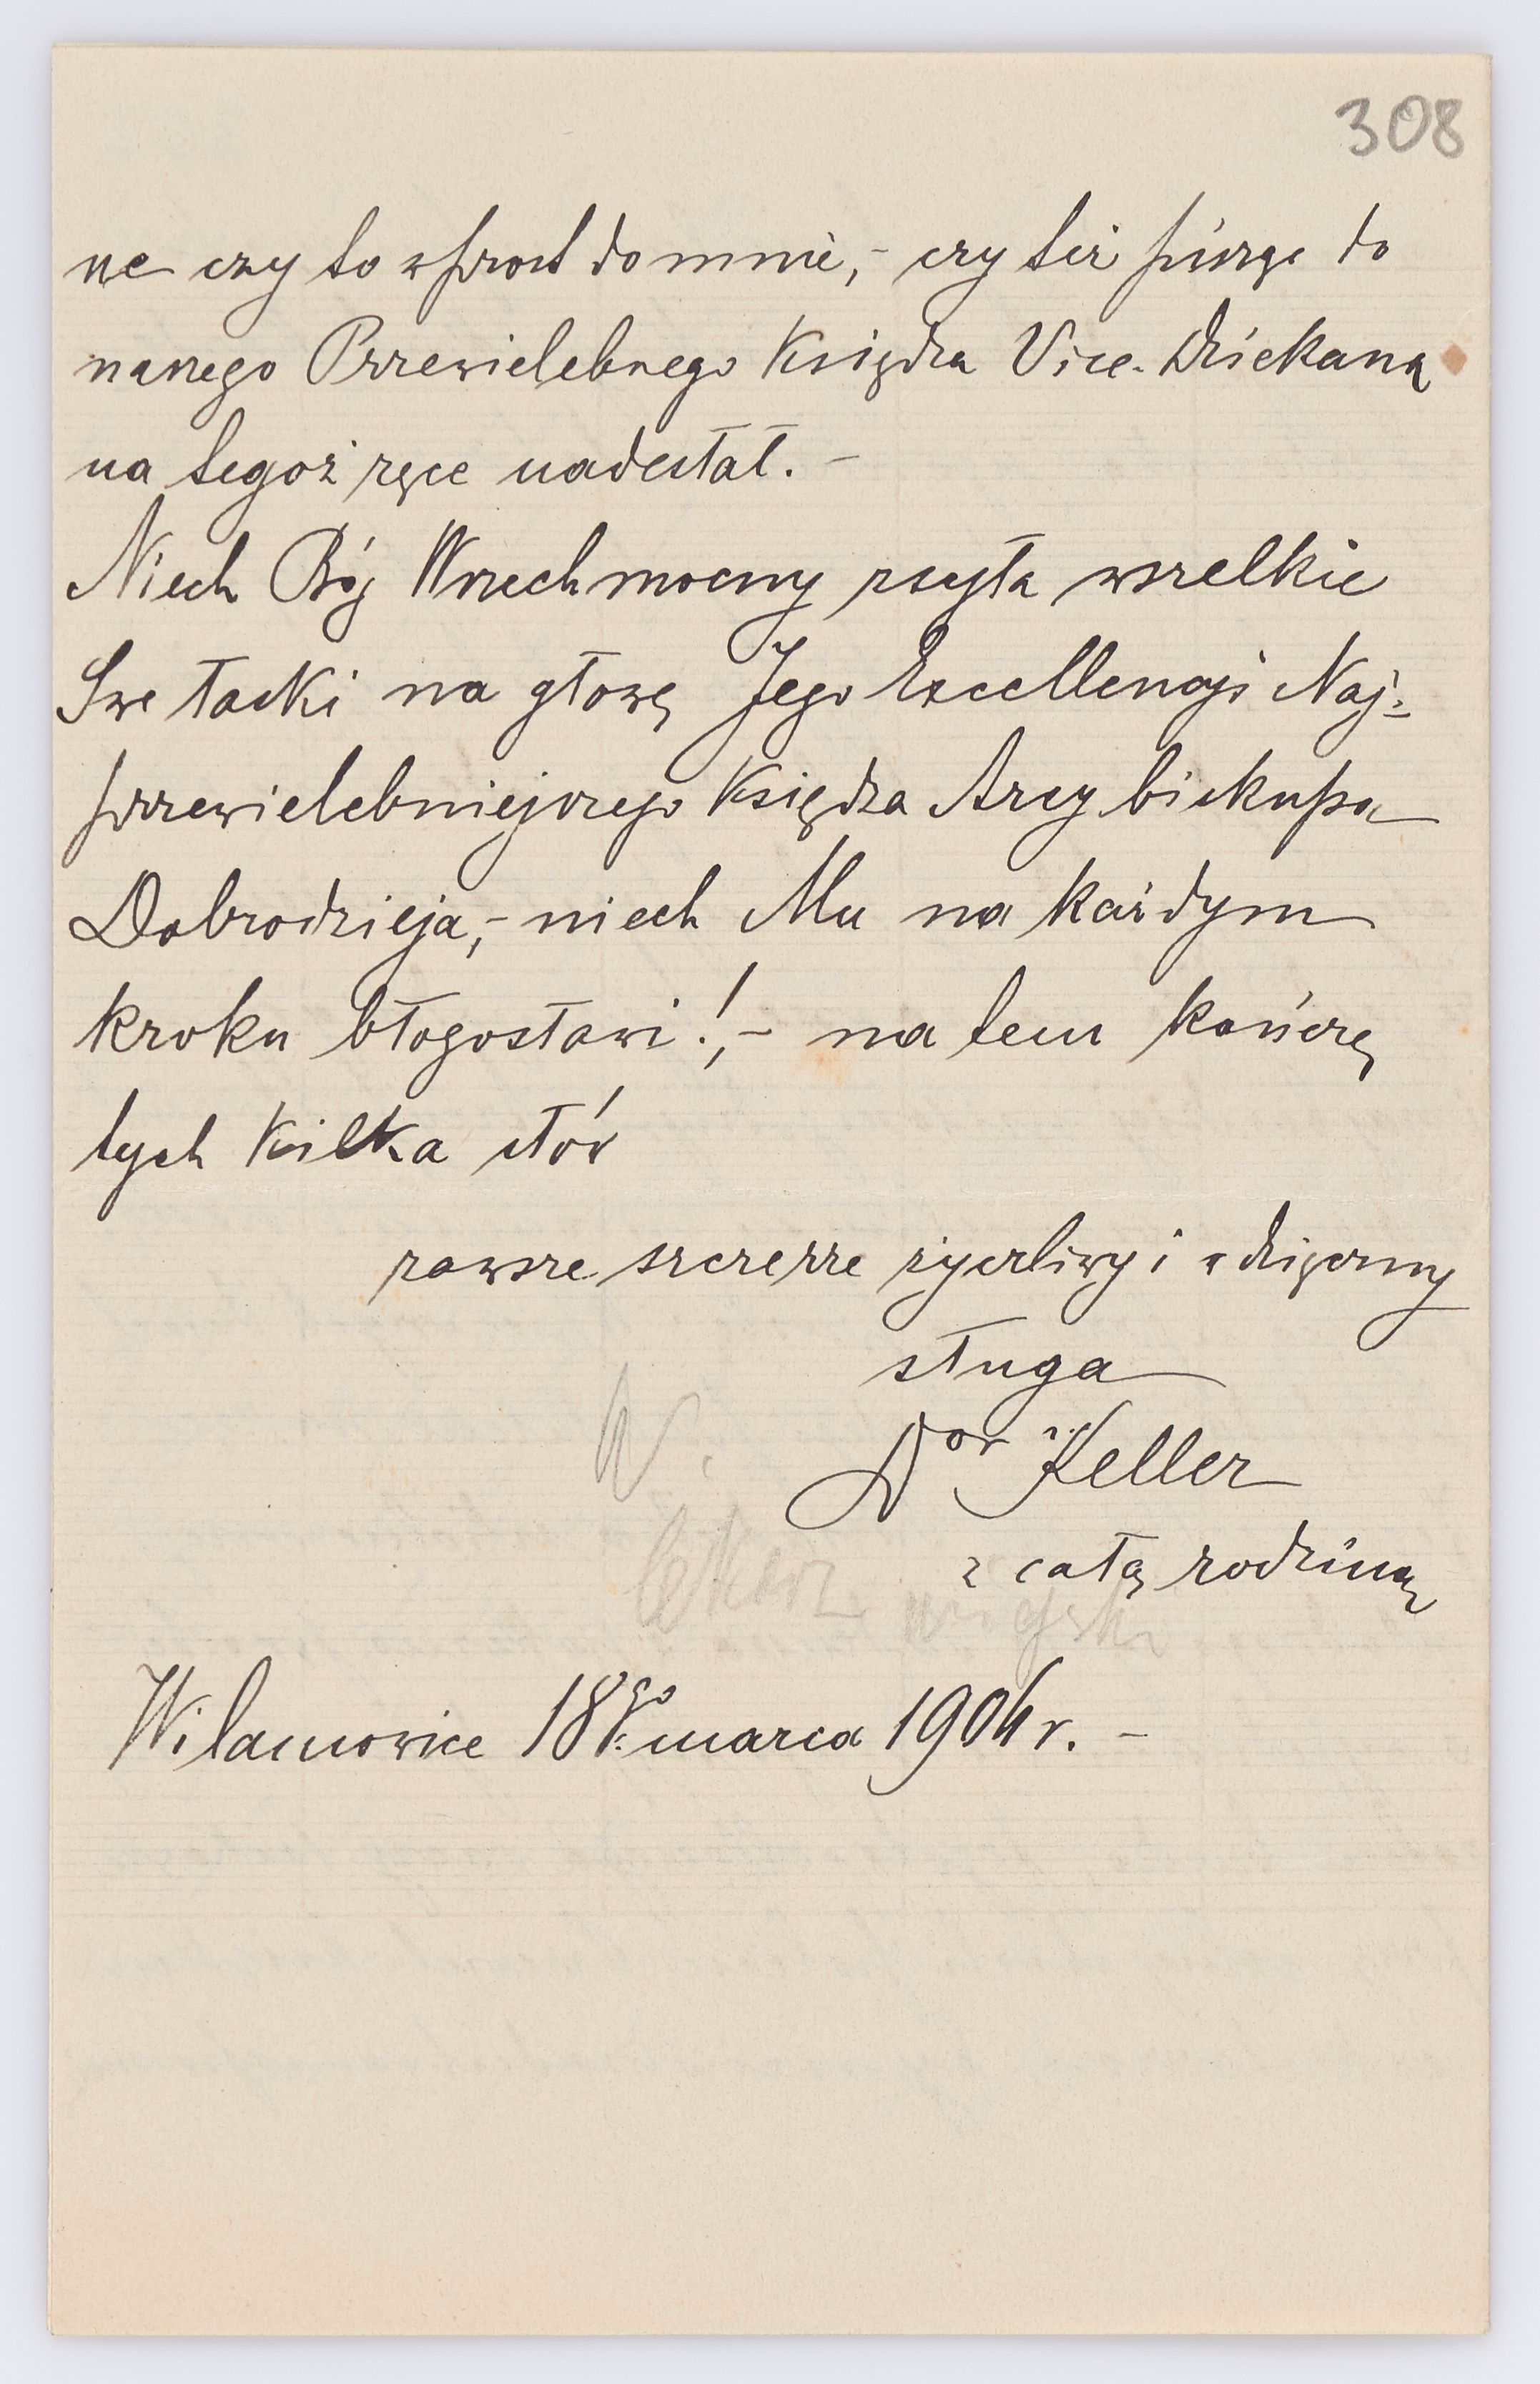 308
ne czy to wprost do mnie,- czy też pisząc do
naszego Przewielebnego Księdza Vice-Dziekana
na tegoż ręce nadesłał. -
Niech Bóg Wszechmocny zsyła wszelkie
Swe łaski na głowę Jego Excellencji Naj-
przewielebniejszego Księdza Arcybiskupa
Dobrodzieja,- niech Mu na każdym
kroku błogosławi!,- na tem kończę
tych kilka słów
zawsze szczerze życzliwy i wdzięczny
sługa
Dor Keller
z całą rodziną
W.
lekarz miejski
Wilamowice 18go marca 1904 r. -